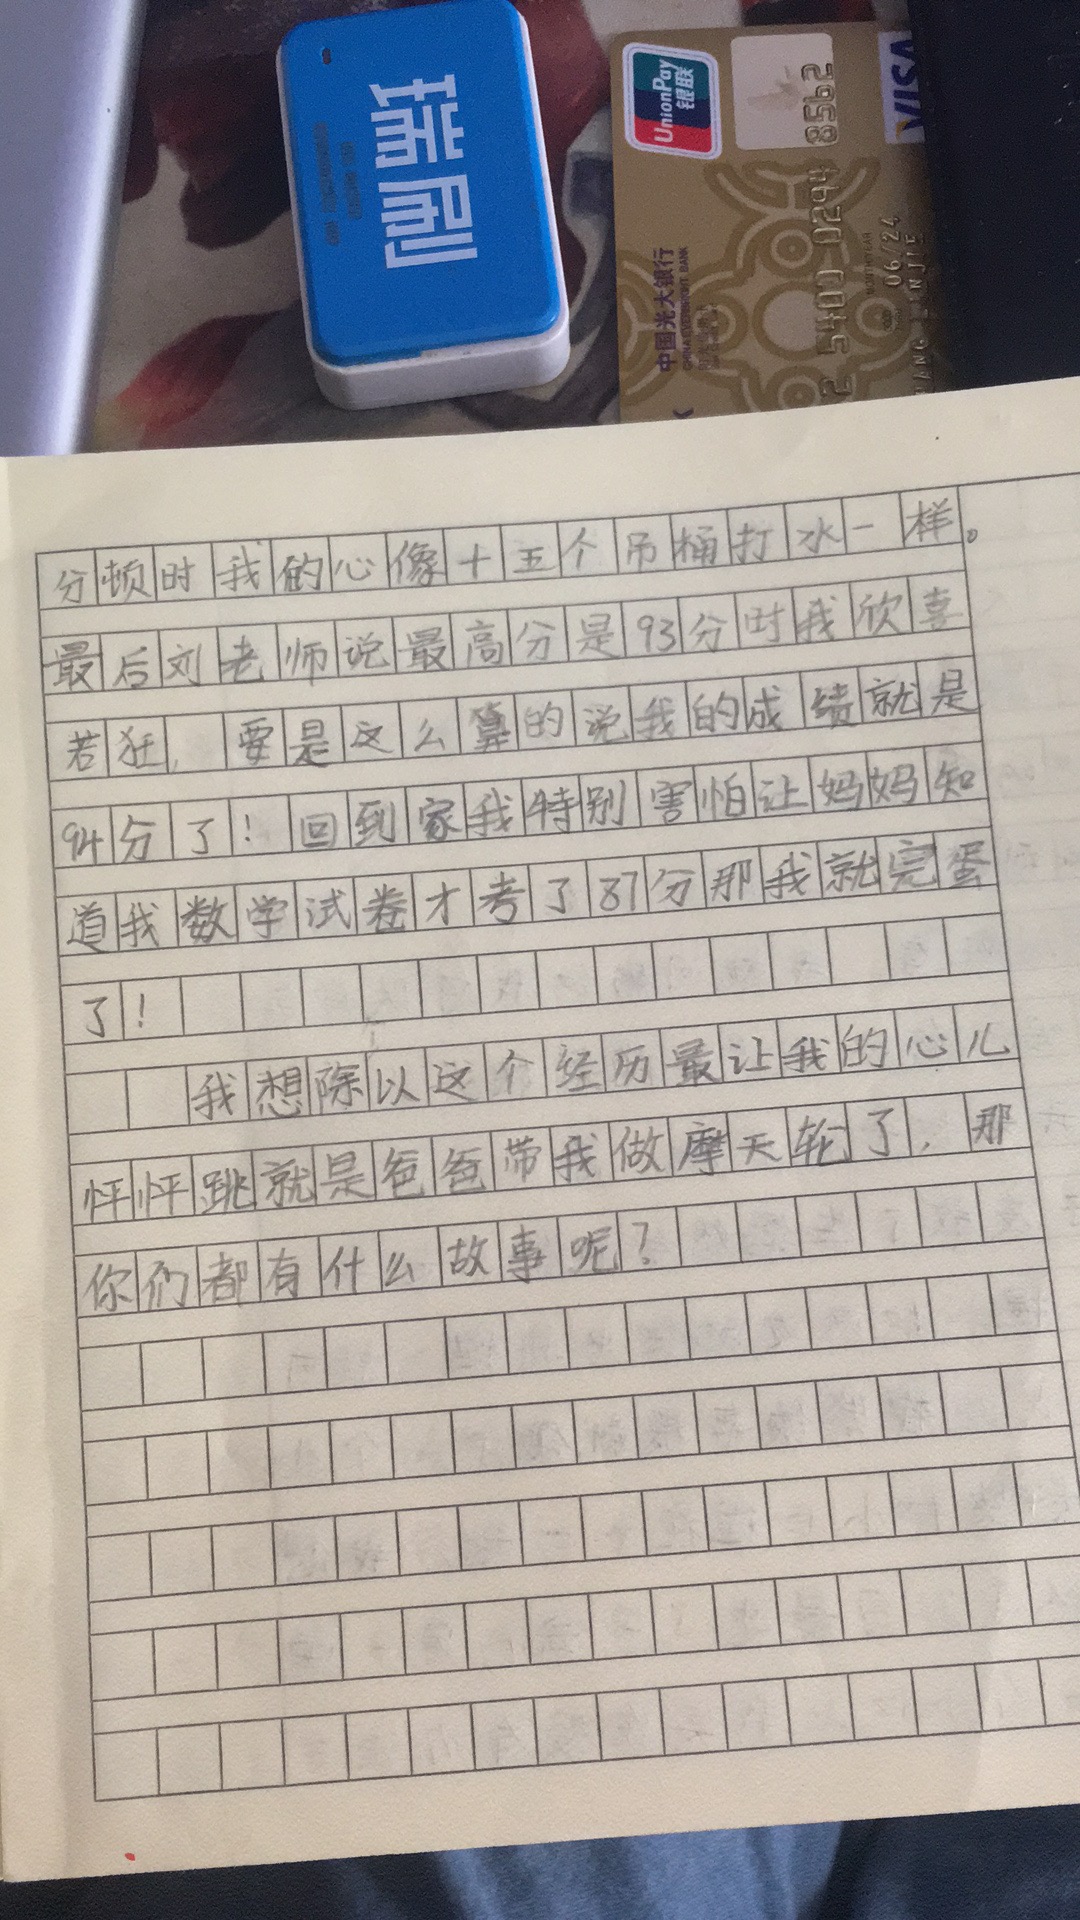 瑞刷
UnionPay
银联
VISA
中国光大银行
CHINA EVERBRIGHT BANK
2 5401 0294 8562
MONTH/YEAR
06/24
分顿时我的心像十五个吊桶打水一样。
最后刘老师说最高分是93分时我欣喜
若狂，要是这么算的说我的成绩就是
94分了！回到家我特别害怕让妈妈知
道我数学试卷才考了87分那我就完蛋
了！
我想除以这个经历最让我的心儿
怦怦跳就是爸爸带我做摩天轮了，那
你们都有什么故事呢？